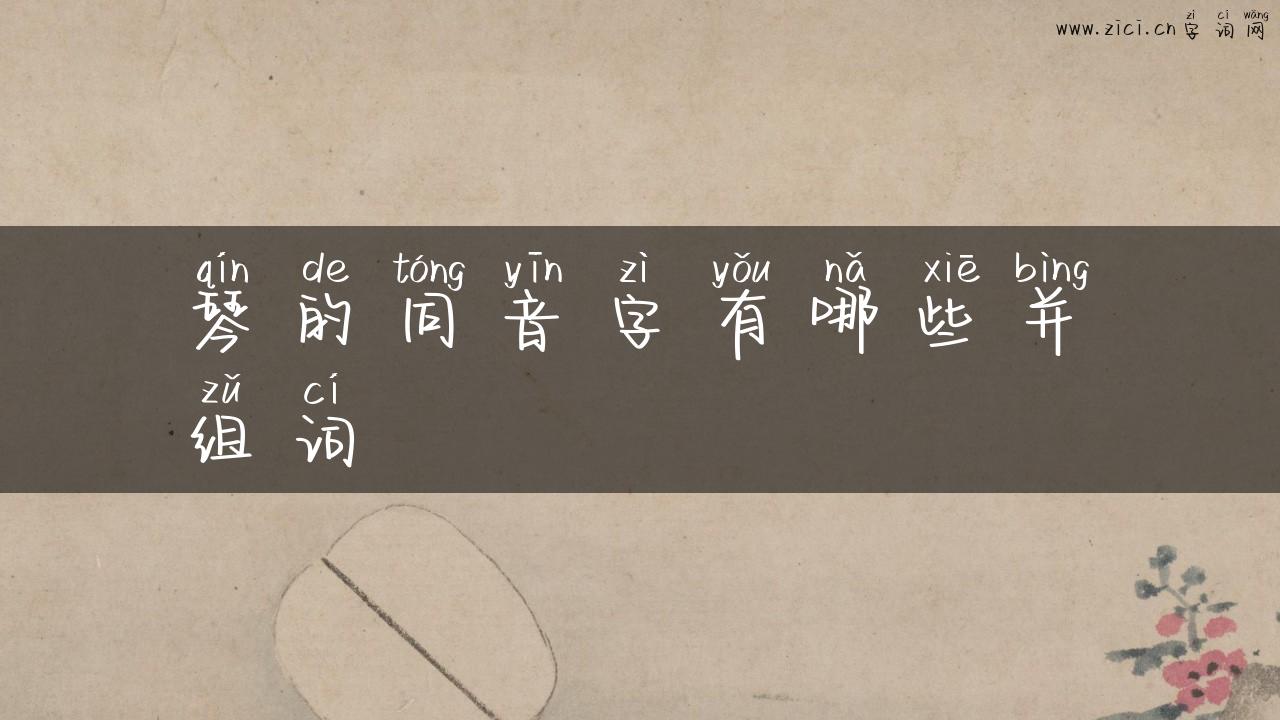 zì cí wǎng
www.zici.cn字词网
qín de tóng yīn zì yǒu nǎ xiē bìng
琴的同音字有哪些并
zǔ cí
组词